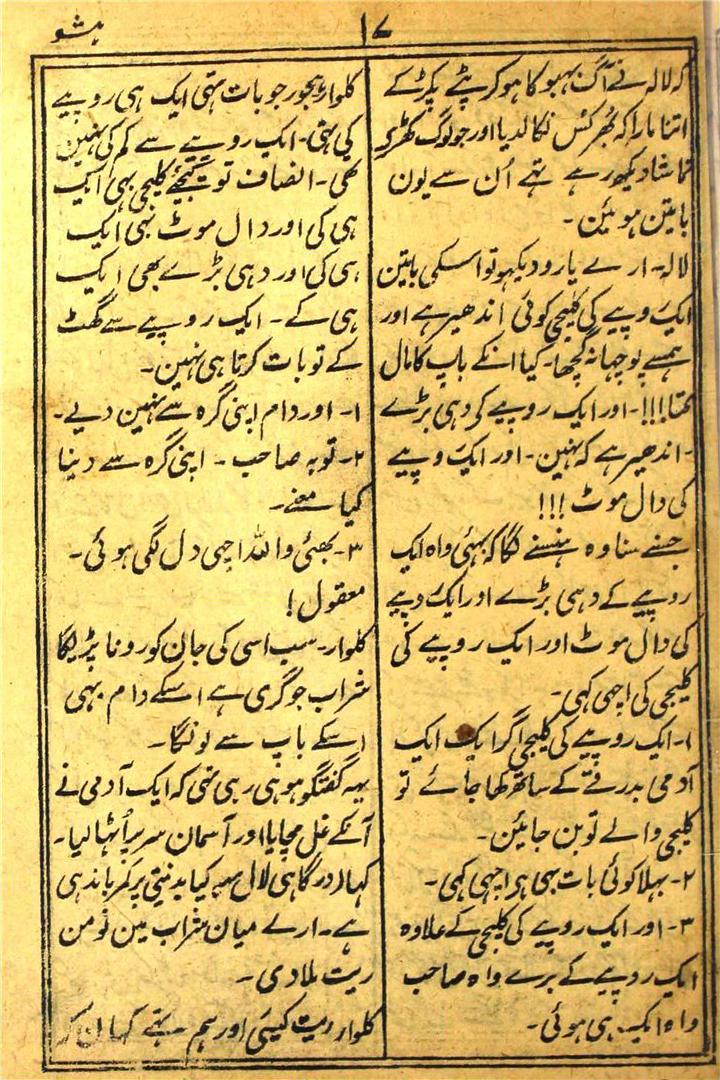 ہشو
۱۷
کہ لالہ نے آگ بہبوکا ہو کر پٹے پکڑ کے
اتنا مارا کہ بُھرکس نکالدیا اور جو لوگ کھڑے
تماشا دیکھ رہے تہے اُن سے یون
باتین ہوئین۔
لالہ۔ ارے یارو دیکہو تو اسکی باتین
ایک روپیے کی کلیجی کوئی اندھیر ہے اور
ہمسے پوچہا نہ گچھا۔ کیا انکے باپ کا مال
تھا!!!۔ اور ایک روپیے کی دہی بڑے
۔اندھیر ہے کہ نہین۔ اور ایک روپیے
کی دال موٹ !!!
جسنے سنا وہ ہنسنے لگا کہ بہئی واہ ایک
روپیے کے دہی بڑے اور ایک روپیے
کی دال موٹ اور ایک روپیے کی
کلیجی کی اچہی کہی۔
۱۔ ایک روپیے کی کلیجی اگر ایک ایک
آدمی بدرقے کے ساتھ کھا جائے تو
کلیجی والے تو بن جائین۔
۲۔ بہلا کوئی بات بہی ہر اچہی کہی۔
۳۔ اور ایک روپیے کی کلیجی کے علاوہ
ایک روپیے کے بڑے واہ صاحب
واہ ایک ہی ہوئی۔
کلوار۔ ہجور جو بات ہتی ایک ہی روپیے
کی ہتی۔ ایک روپیے سے کم کی نہین
تھی۔ انصاف تو کیجیے کلیجی بہی ایک
ہی کی اور دال موٹ بہی ایک
ہی کی اور دہی بڑے بھی ایک
ہی کے۔ ایک روپیے سے گھٹ
کے تو بات کرتا ہی نہین۔
۱۔ اور دام اپنی گرہ سے نہین دیے۔
۲۔ توبہ صاحب۔ اپنی گرہ سے دینا
کیا معنے۔
۳۔ بھئی واللہ اچہی دل لگی ہوئی۔
معقول!
کلوار۔ سب اسی کی جان کو رونا پڑیگا
شراب جو گری ہے اسکے دام بہی
اسکے باپ سے لونگا۔
یہہ گفتگو ہو ہی رہی تہی کہ ایک آدمی نے
آنکے غل مچایا اور آسمان سر پر اُٹہا لیا۔
کہا۔ درگاہی لال یہ کیا بدنیتی پر کمر باندہی
ہے۔ ارے میان شراب مین نو من
ریت ملا دی۔
کلوار۔ ریت کیسی اور ہم نے کہا ان کہ